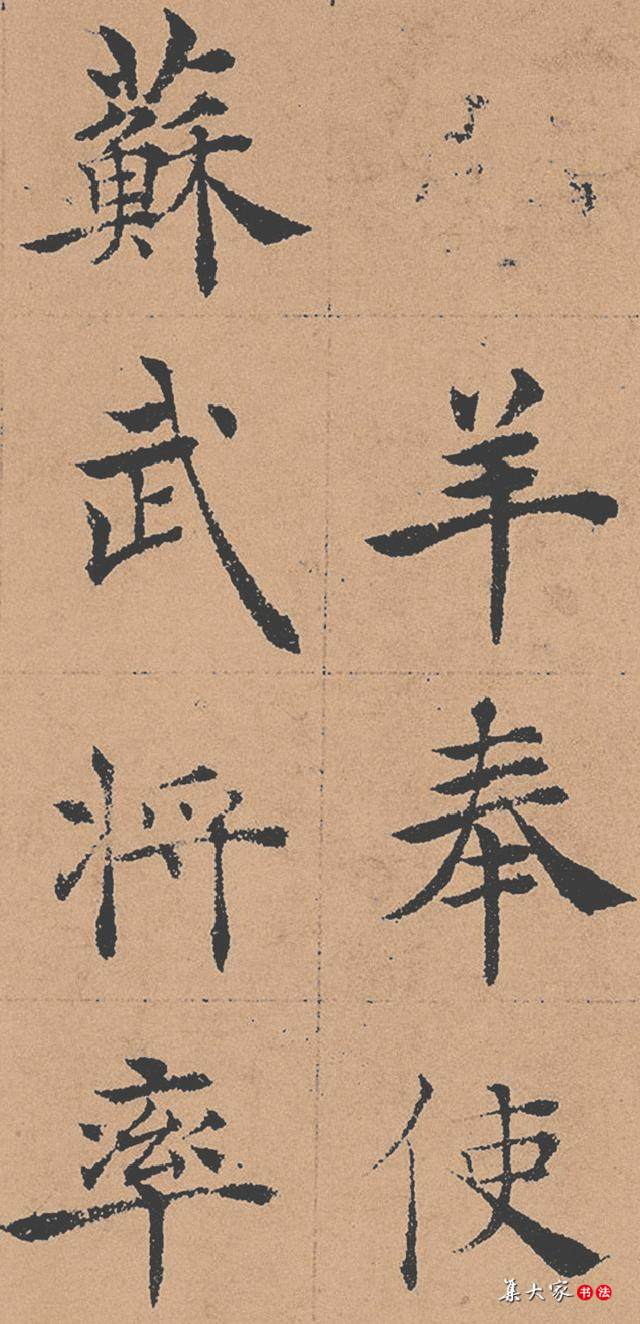 羊奉使
蘇武將率
集大家书法